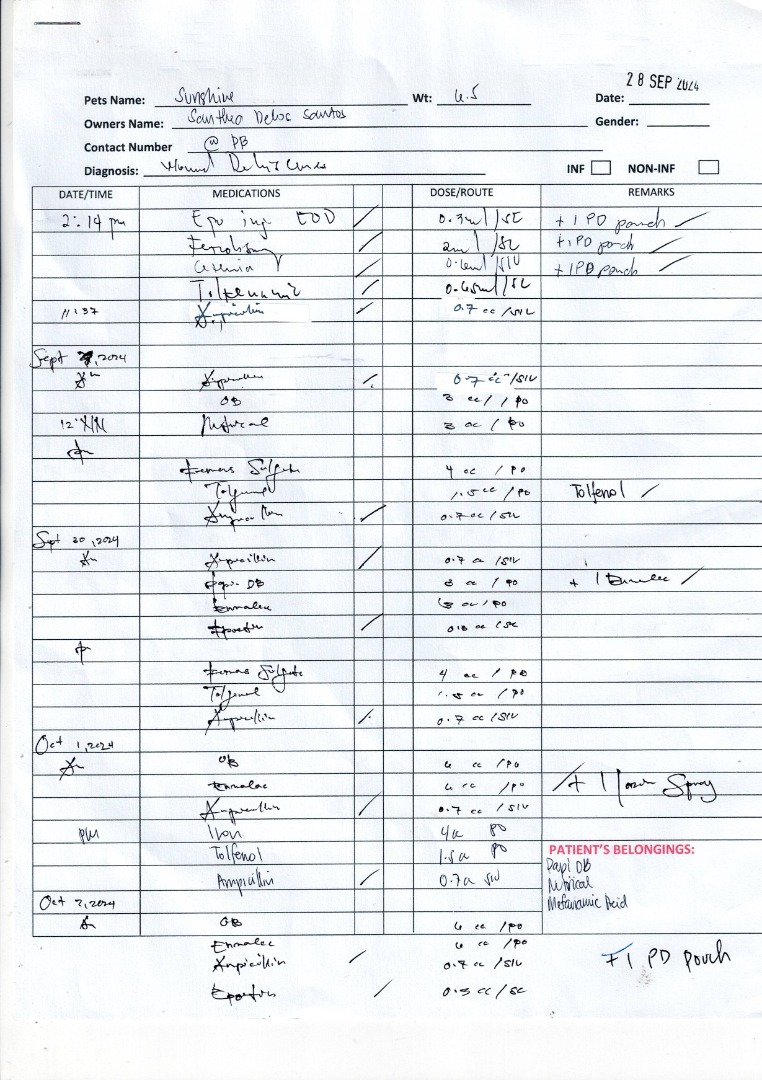 28 SEP 2024
Pets Name: Sunshine Wt: 6.5 Date:
Owners Name: Santhea Delos Santos Gender:
Contact Number @ PB
Diagnosis: Wound INF NON-INF
DATE/TIME MEDICATIONS DOSE/ROUTE REMARKS
2:14 pm Epo inj EOD 0.3ml/SC +1 PD pouch
2ml /SC +1 PD pouch
+1 PD pouch
Tolfenamic 0.65ml/SC
11:37 Ampicillin 0.7 cc /SIV
Sept , 2024
Ampicillin 0.7 cc /SIV
OB 3 cc / PO
12 NN 3 cc / PO
Ferrous Sulfate 4 cc / PO
Tolfenol 1.5 cc / PO Tolfenol
Ampicillin 0.7 cc / SIV
Sept 30, 2024
Ampicillin 0.7 cc /SIV
OB 3 cc / PO + 1 Emmalac
Emmalac cc / PO
Epoetin cc / SC
Ferrous Sulfate 4 cc / PO
Tolfenol 1.5 cc / PO
Ampicillin 0.7 cc / SIV
Oct 1, 2024
OB 6 cc / PO
Emmalac 6 cc / PO + 1 Spray
Ampicillin 0.7 cc / SIV
PM Iron 4cc PO
Tolfenol 1.5cc PO
Ampicillin 0.7cc SIV
PATIENT'S BELONGINGS:
Papi OB
Nutrical
Mefanamic Acid
Oct 2, 2024
OB 6 cc / PO
Emmalac 6 cc / PO
Ampicillin 0.7 cc / SIV
+1 PD pouch
Epoetin 0.3 cc / SC